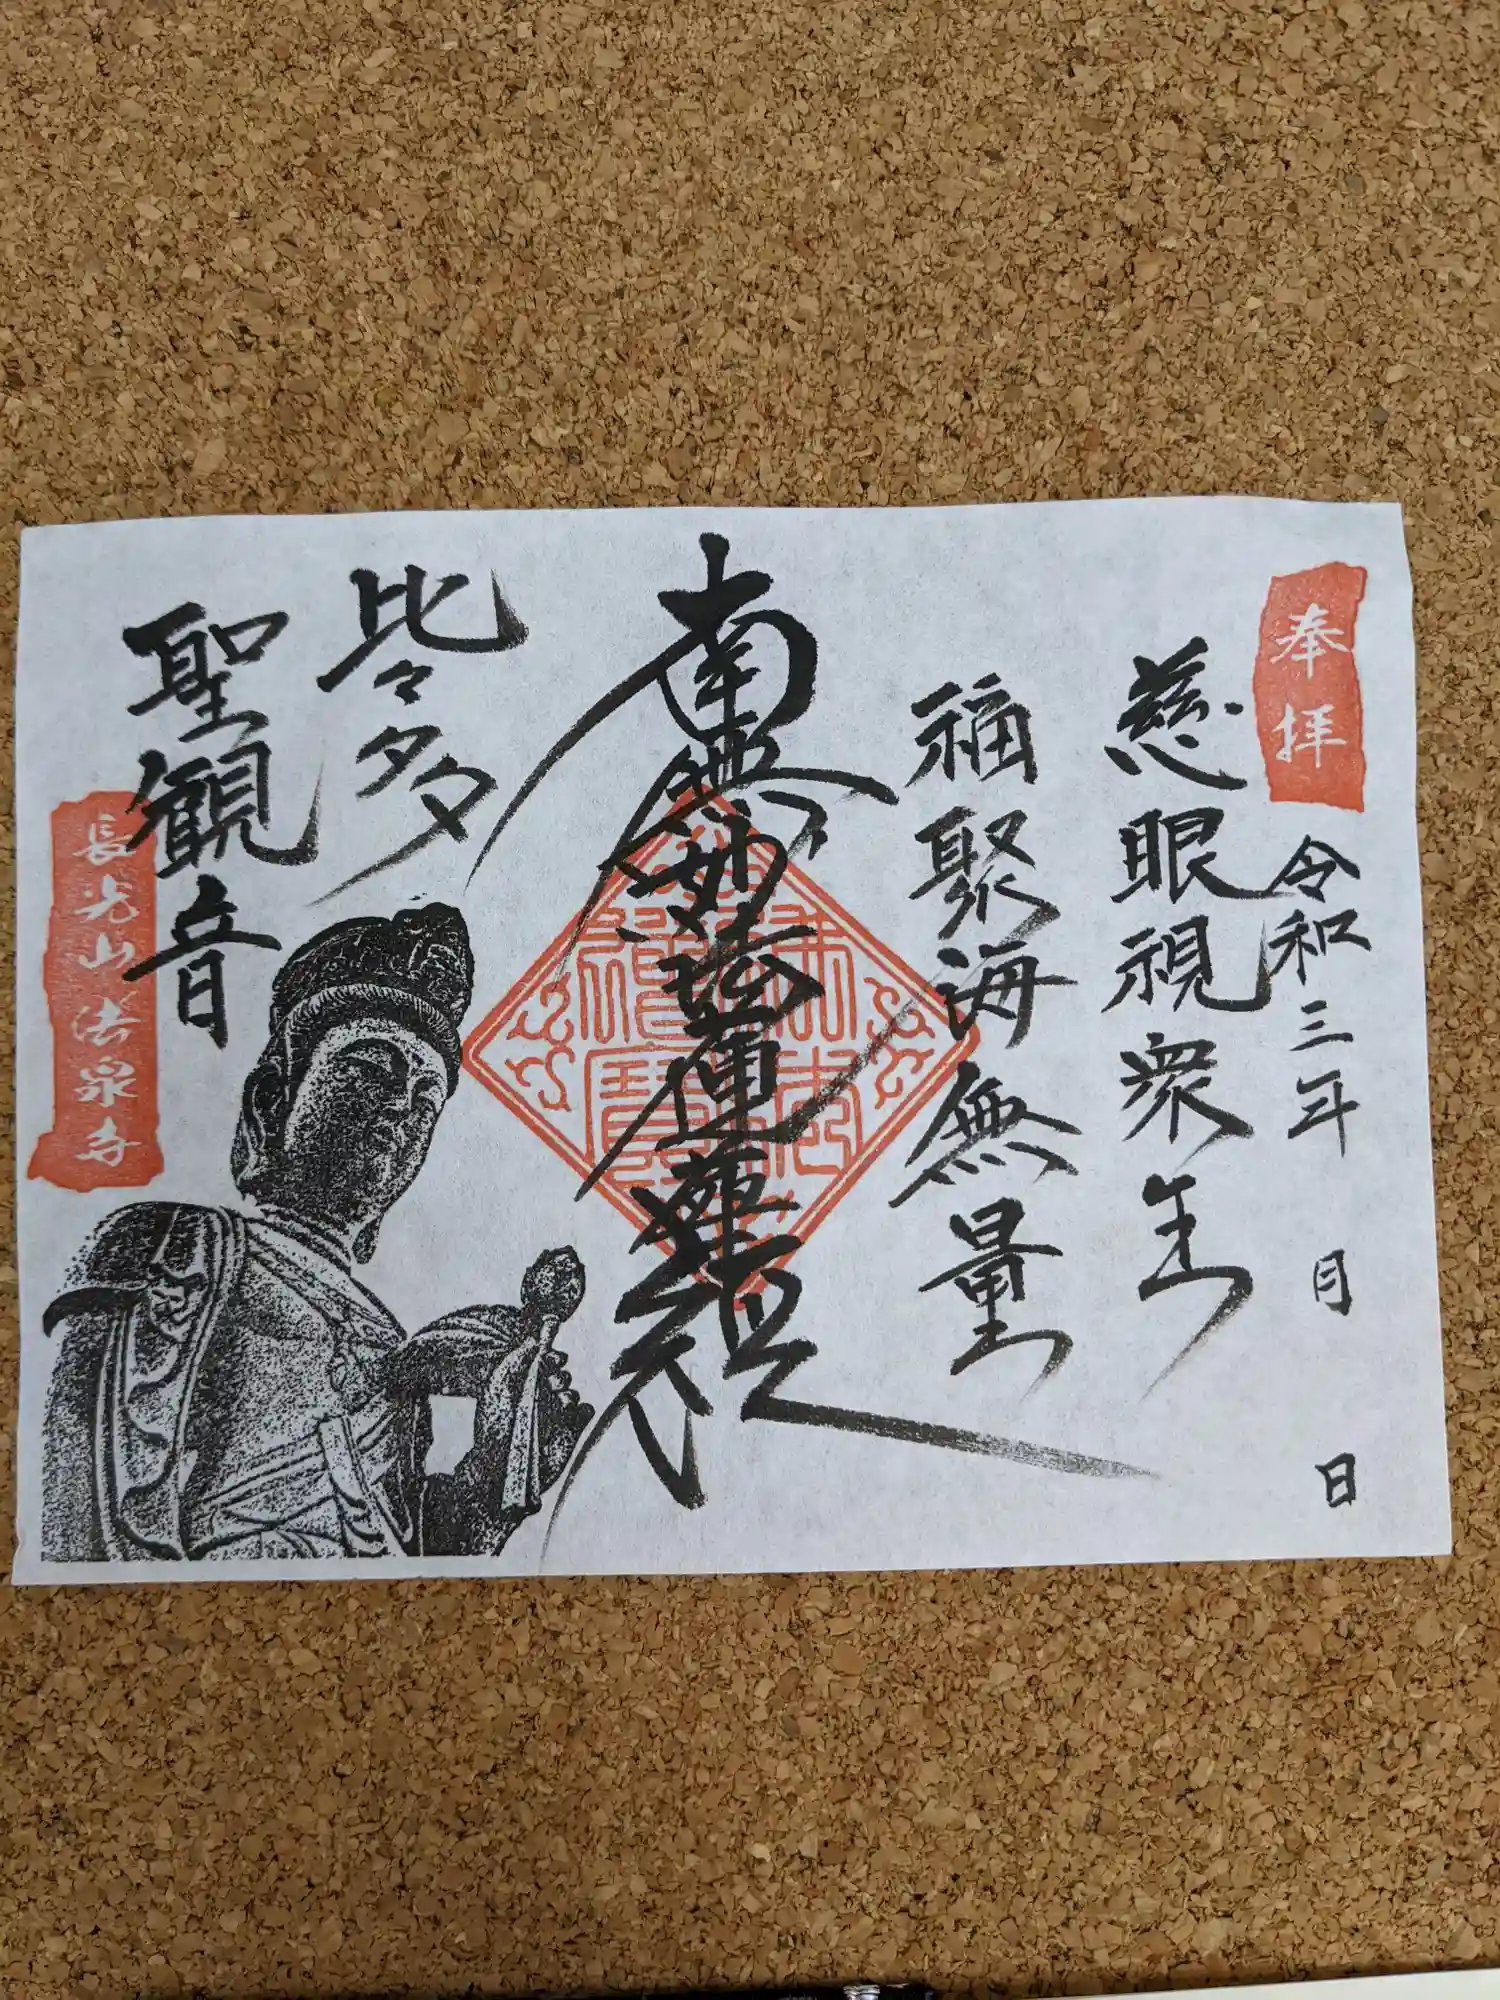 奉拝
令和三年 月 日
慈眼視衆生
福聚海無量
南無妙法蓮華経
比々多
聖観音
長光山法泉寺